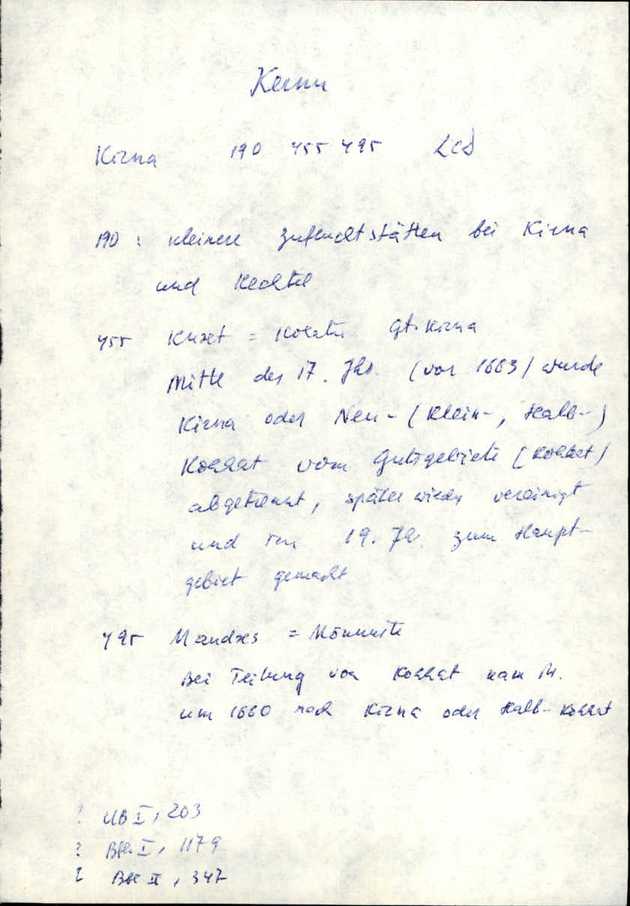 Kernu
Kirna 190 455 495 LCD
190 : kleinere Zufluchtstätten bei Kirna
und Kechtel
455 = Kohatu Gt. Kirna
Mitte des 17. Jhs. (vor 1663) wurde
Kirna oder Neu- (Klein-, Halb-)
Kohhat vom Gutsgebiete (Kohhat)
abgetrennt, später wieder vereinigt
und im 19. Jh. zum Haupt-
gebiet gemacht
495 = Mõnnuste
Bei Teilung von Kohhat kam M.
um 1660 nach Kirna oder Halb-Kohhat
? UB I, 203
? Bfl. I, 1179
? Bfl II, 347